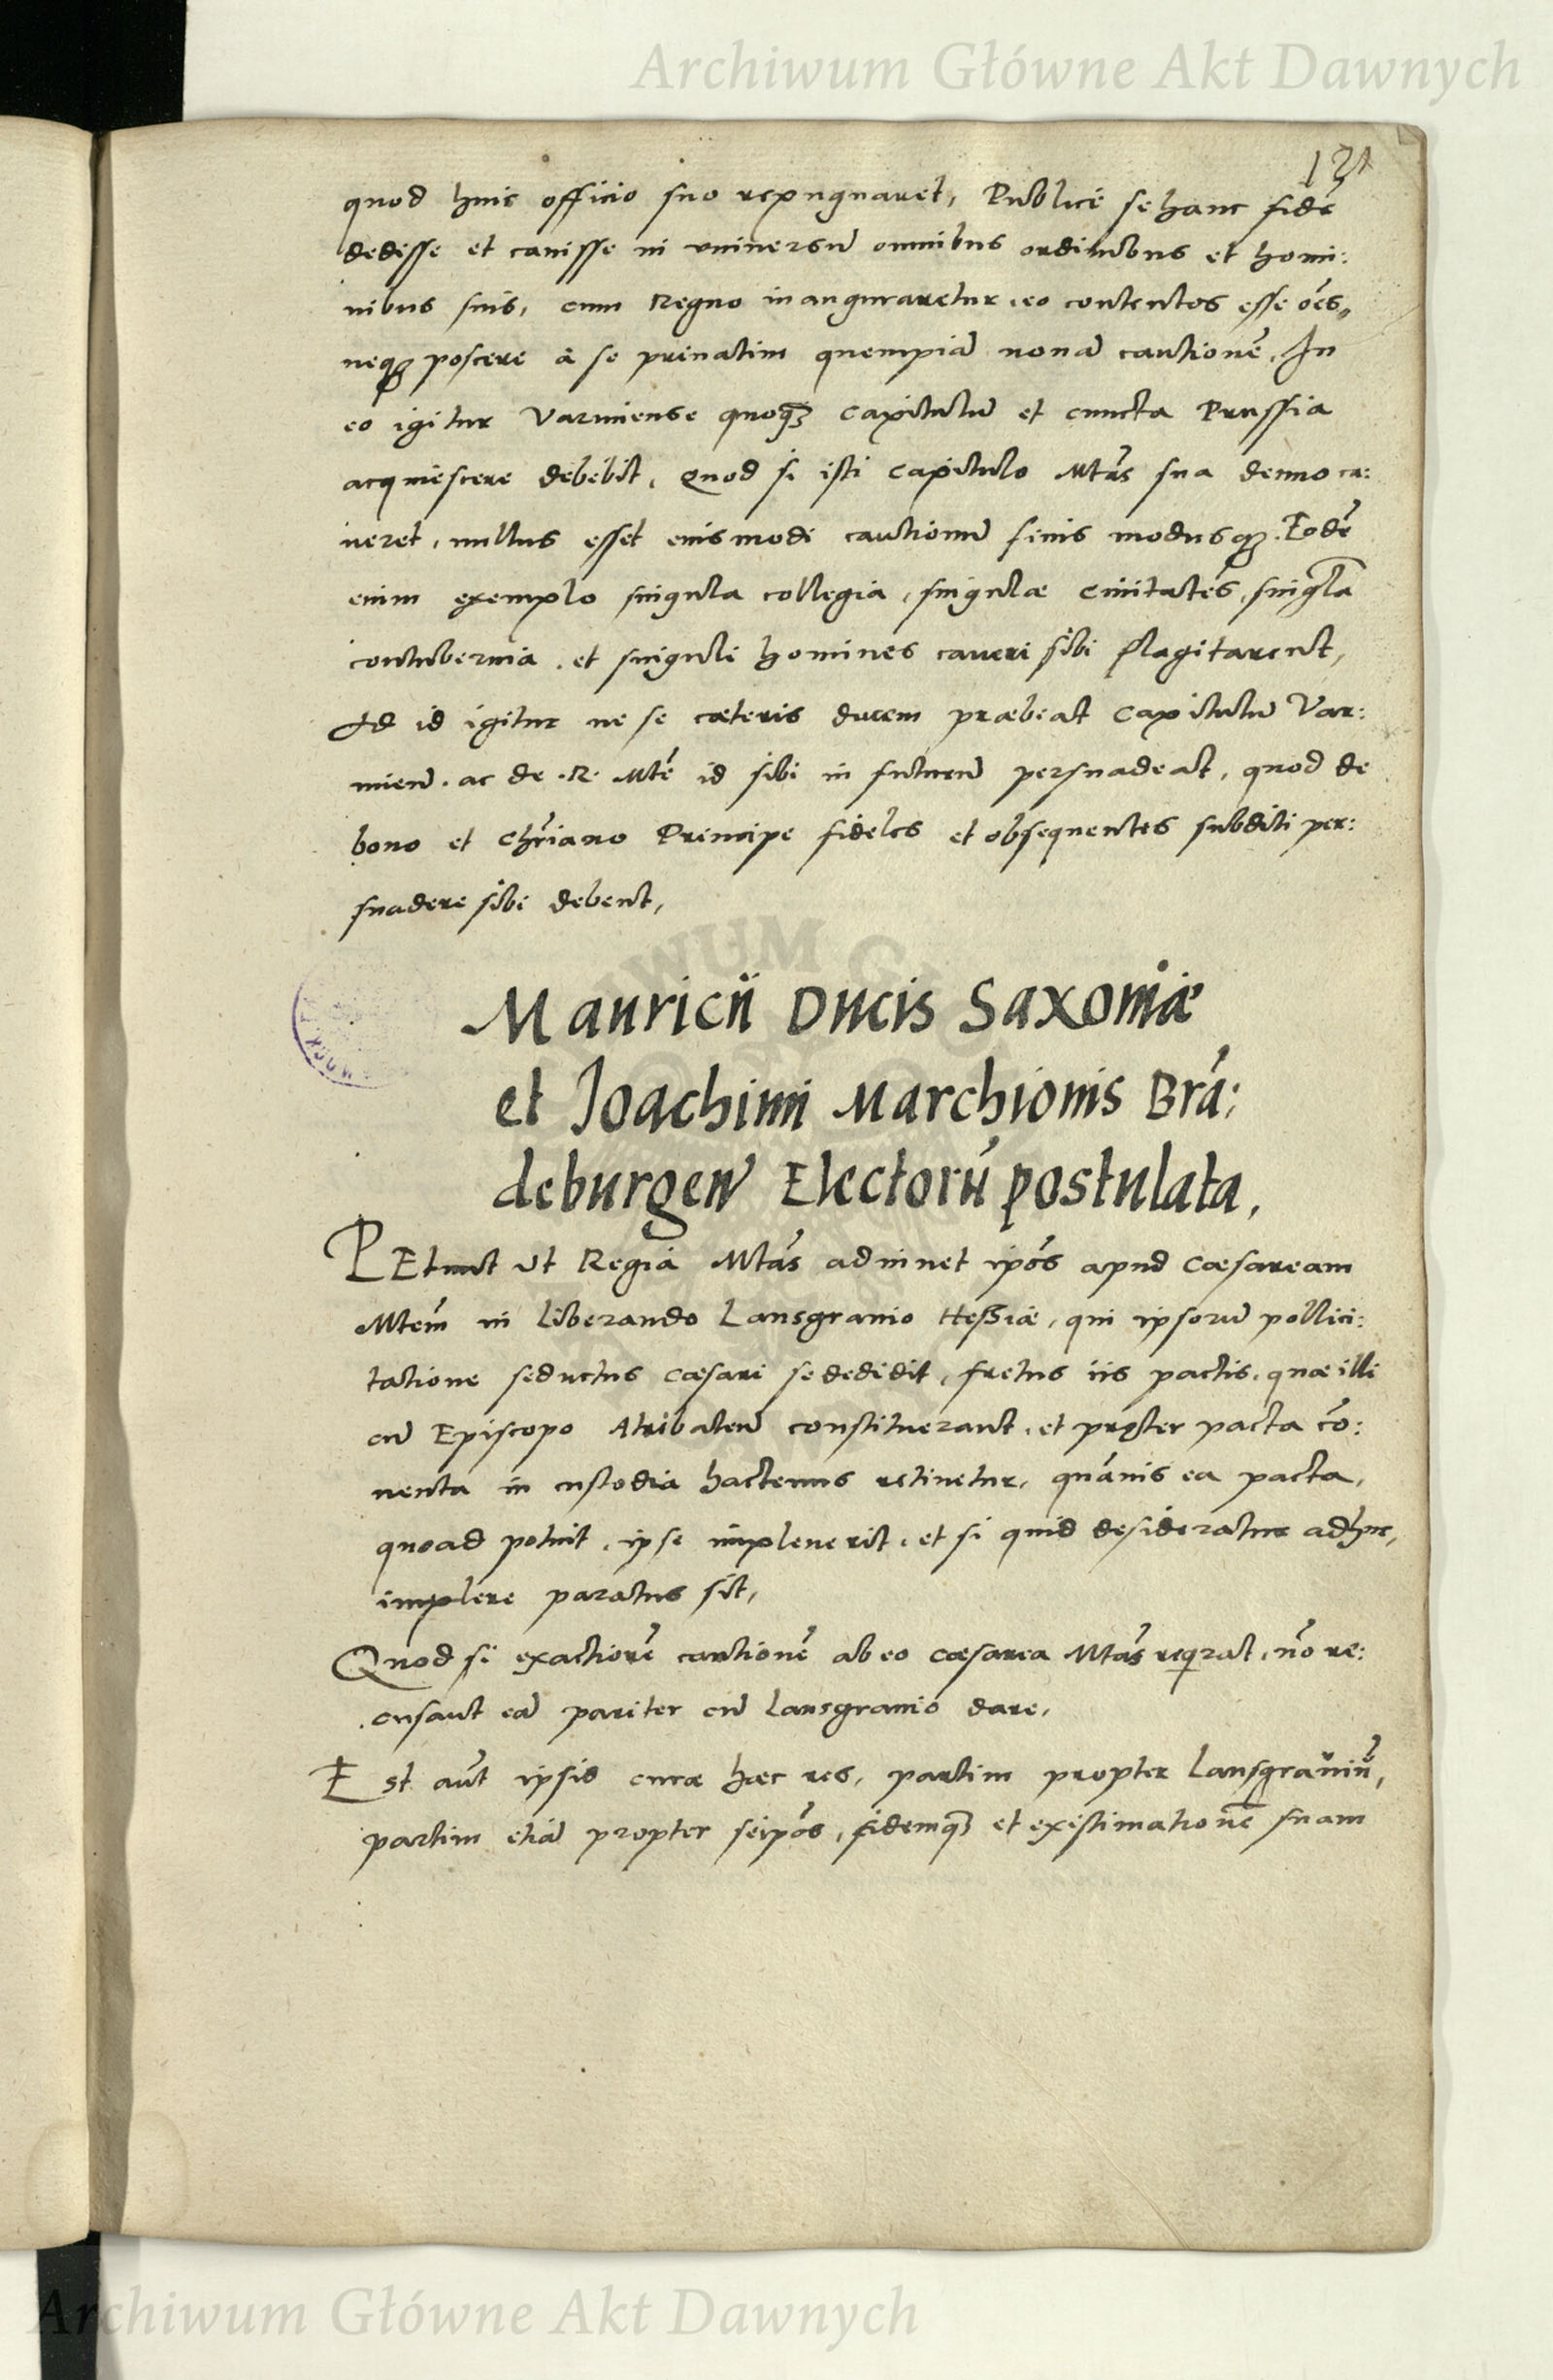 Archiwum Główne Akt Dawnych
131
quod huic officio suo repugnaret, Publicè se hanc fidē
dedisse et cauisse in vniuersū omnibus ordinibus et homi:
nibus suis, cum Regno inauguraretur, eo contentos esse oēs,
neq; poscere à se priuatim quempiā nouā cautionē. In
eo igitur Varmiense quoq; Capitulū et cuncta Prussia
acquiescere debebit. Quod si isti Capitulo Mtās sua denuo ca:
ueret, nullus esset eiusmodi cautionū finis modusq;. Eodē
enim exemplo singula collegia, singulae Ciuitates, singla
contubernia, et singuli homines caueri sibi flagitarent,
Ad id igitur ne se caeteris ducem praebeat Capitulū Var:
mieñ. ac de .R. Mtē id sibi in futurū persuadeat, quod de
bono et Chr̄iano Principe fideles et obsequentes subditi per:
suadere sibi debent,
Mauricii Ducis Saxoniæ
et Joachimi Marchionis Brā:
deburgeñ Electorū postulata,
PEtunt Vt Regia Mtās adiuuet ip̄os apud Caesaream
Mtem̄ in liberando Lansgrauio Heßiæ, qui ipsorū pollici:
tatione seductus Caesari se dedidit, fretus iis pactis, quae illi
cū Episcopo Atribateñ constituerant, et pręter pacta cō:
uenta in custodia hactenus retinetur, quāuis ea pacta,
quoad potuit, ipse impleuerit, et si quid desideratur adhuc,
implere paratus sit,
Quod si exactiorē cautionē ab eo Caesarea Mtās reqrat, nō re:
cusant eā pariter cū Lansgrauio dare,
Est aūt ipsis curae haec res, partim propter Lansgrauiū,
partim etiā propter seip̄os, fidemq; et existimationē suam
Archiwum Główne Akt Dawnych